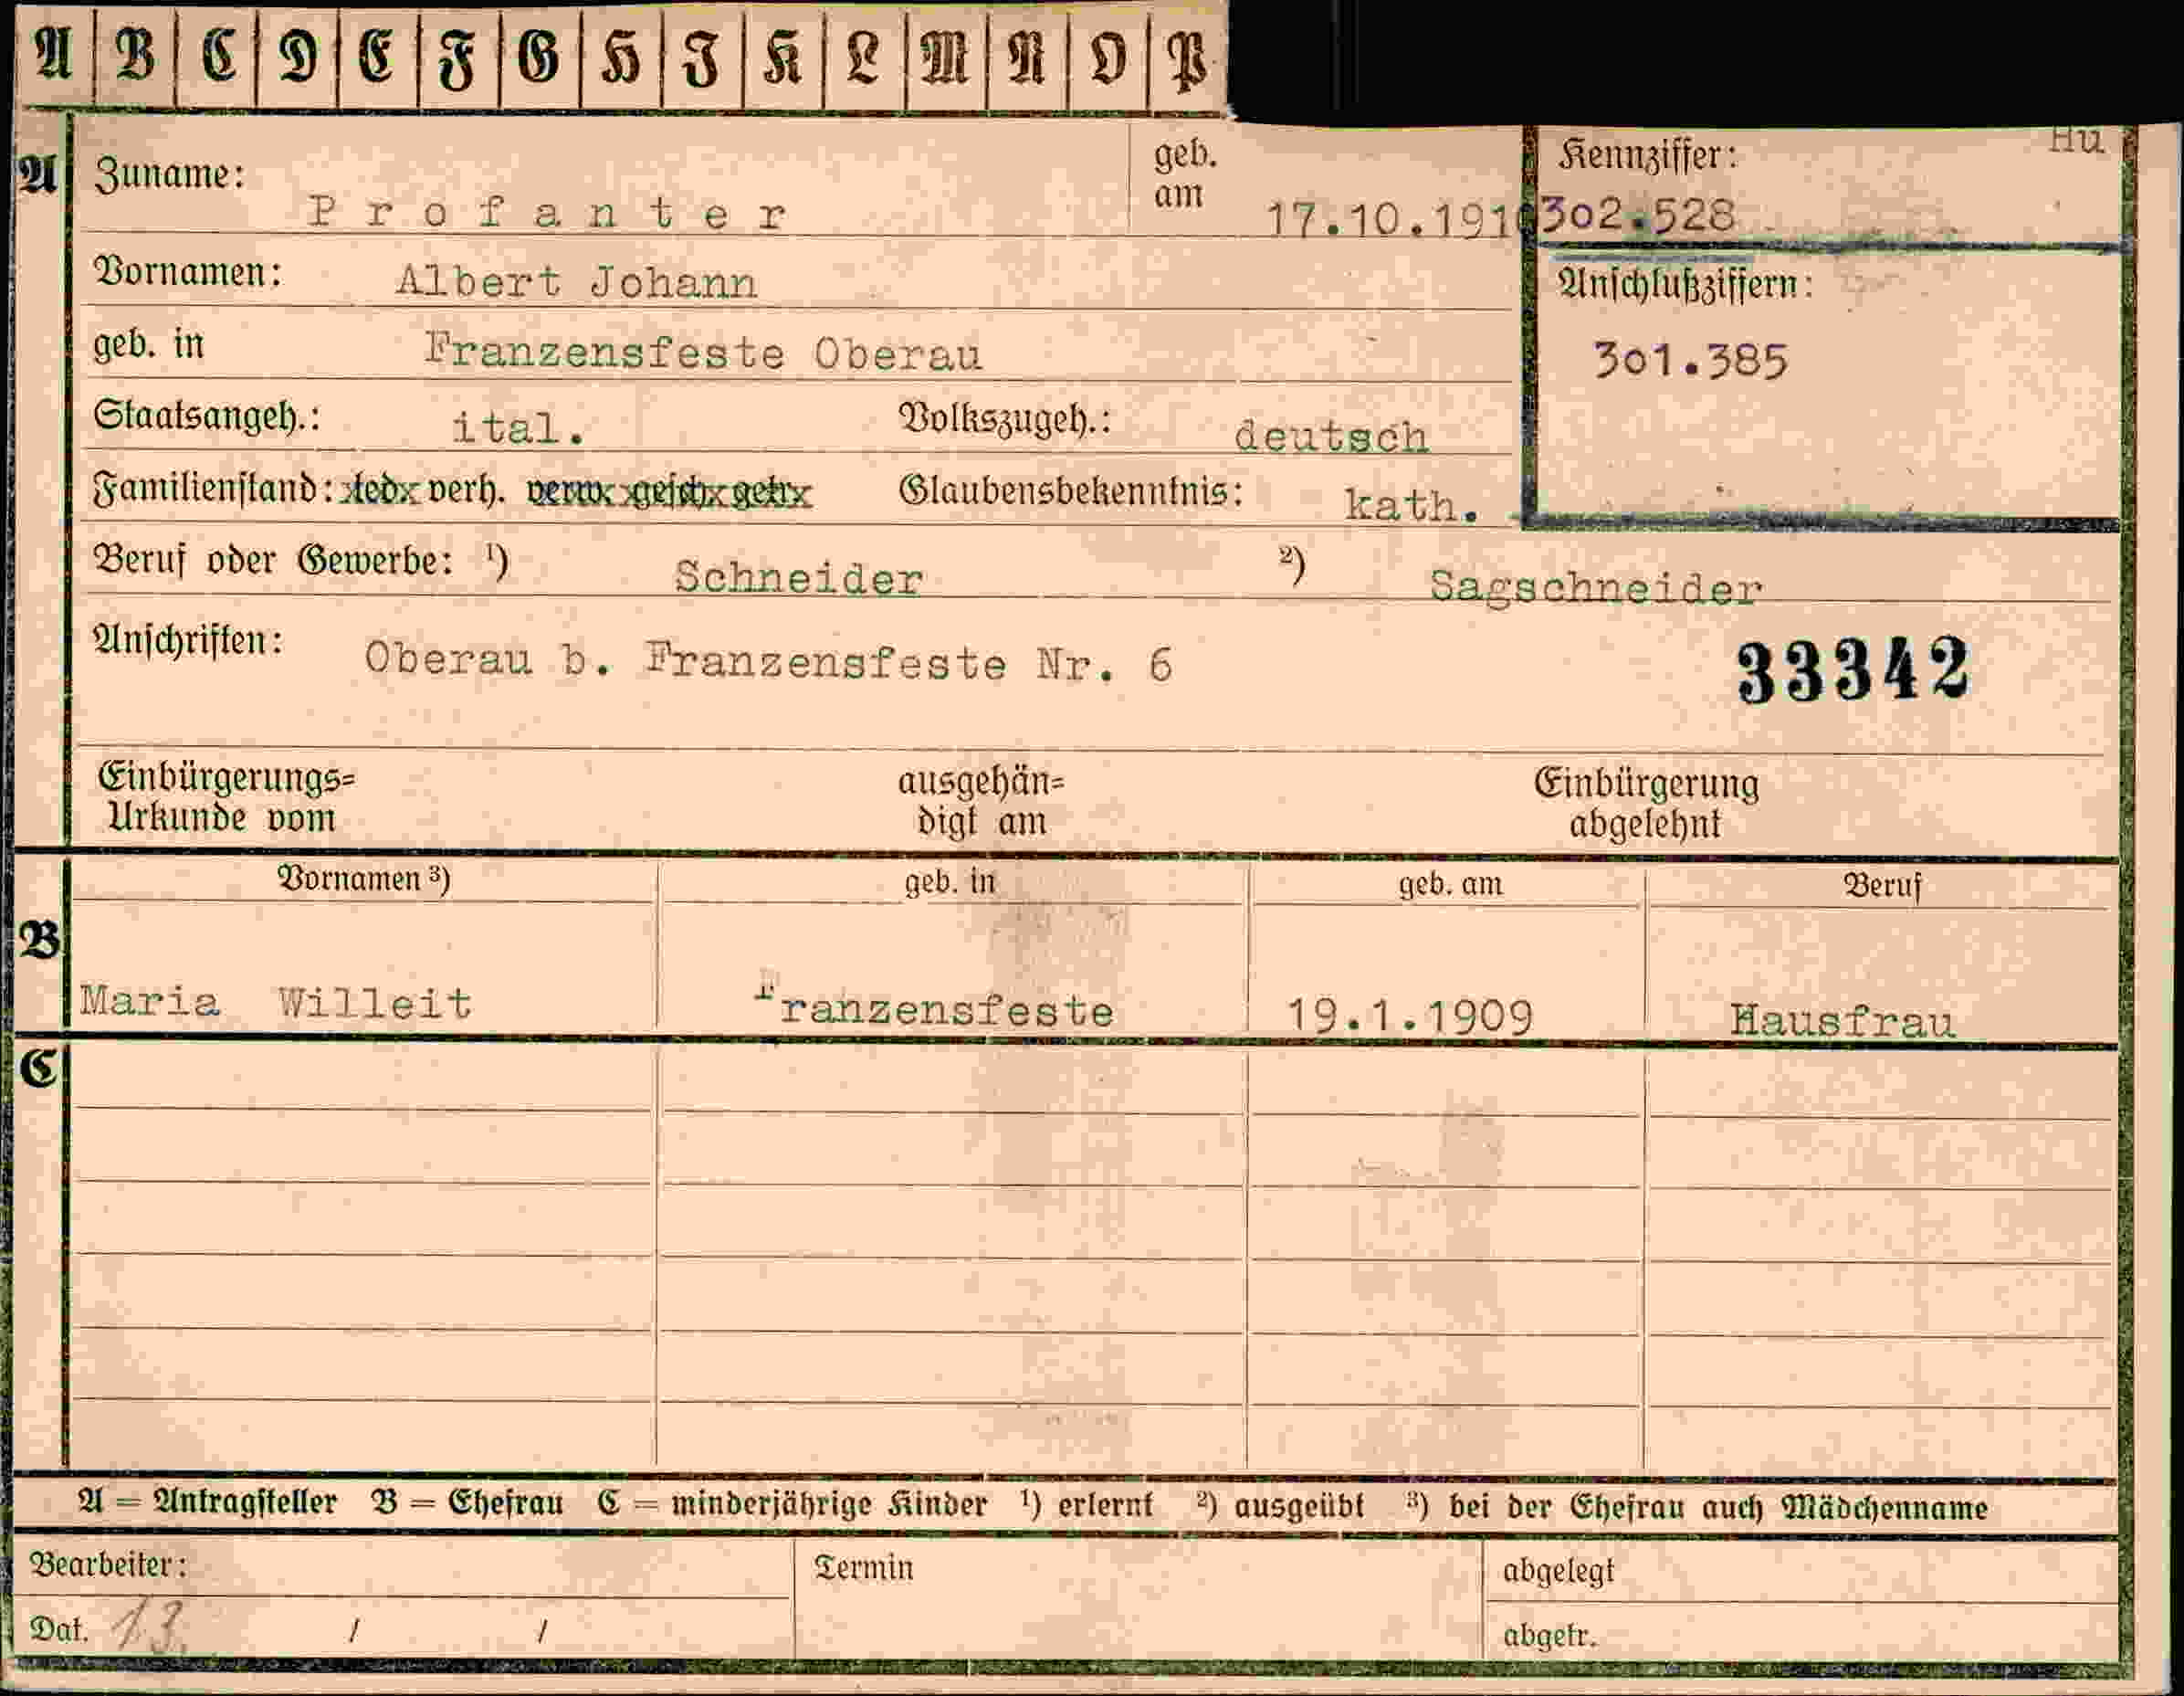 A B C D E F G H I K L M N O P
A Zuname: Profanter geb. am 17.10.191 Kennziffer: 302.528 Hu
Vornamen: Albert Johann Anschlußziffern:
geb. in Franzensfeste Oberau 301.385
Staatsangeh.: ital. Volkszugeh.: deutsch
Familienstand: led. verh. verw. gesch. getr. Glaubensbekenntnis: kath.
Beruf oder Gewerbe: ¹) Schneider ²) Sagschneider
Anschriften: Oberau b. Franzensfeste Nr. 6 33342
Einbürgerungs= ausgehän= Einbürgerung
Urkunde vom digt am abgelehnt
Vornamen ³) geb. in geb. am Beruf
B
Maria Willeit Franzensfeste 19.1.1909 Hausfrau
C
A = Antragsteller B = Ehefrau C = minderjährige Kinder ¹) erlernt ²) ausgeübt ³) bei der Ehefrau auch Mädchenname
Bearbeiter: Termin abgelegt
Dat. 13. / / abgetr.